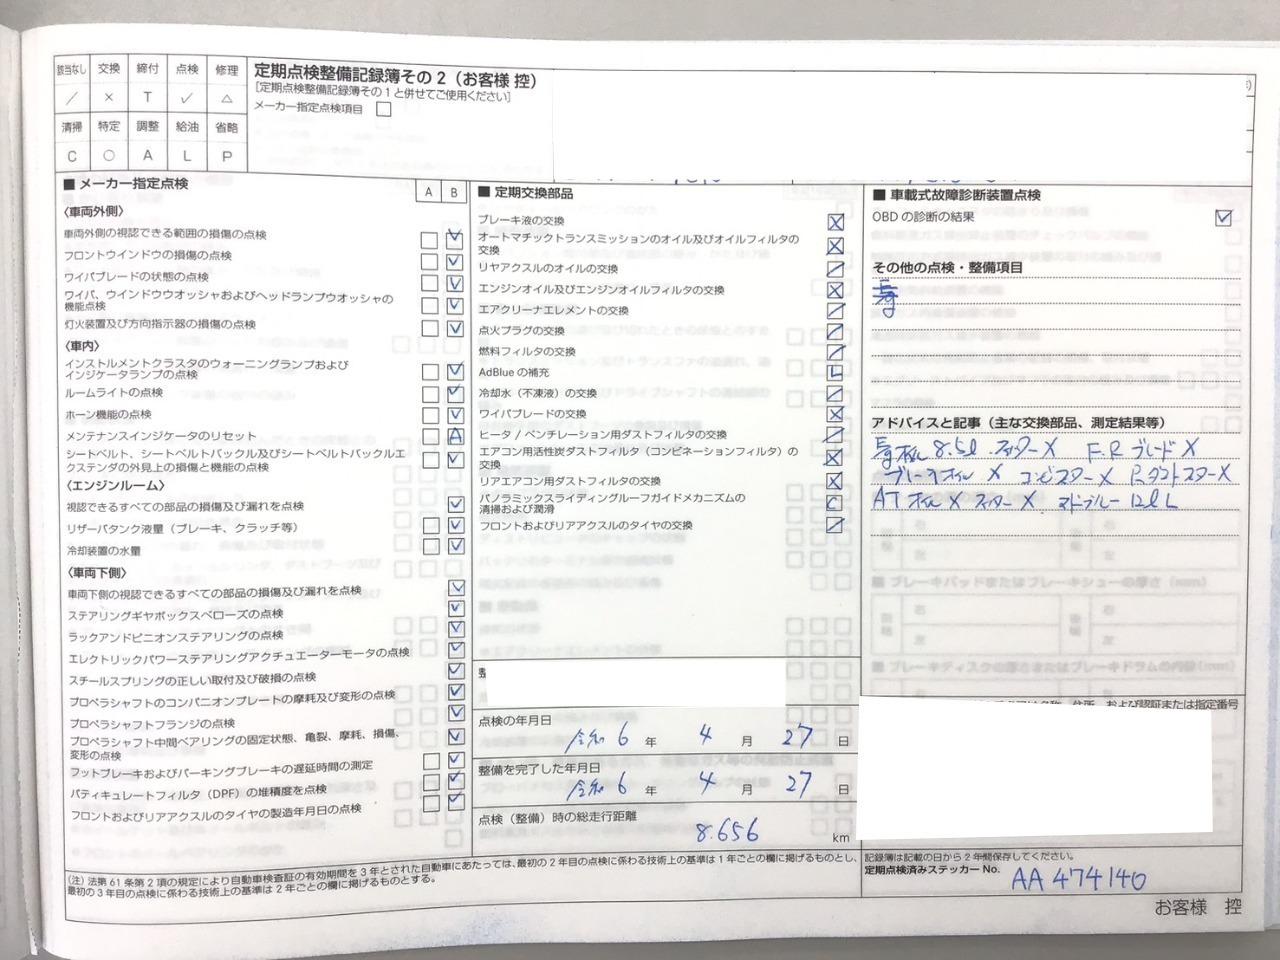 該当なし 交換 締付 点検 修理
／ × T ✓ △
清掃 特定 調整 給油 省略
C ○ A L P
定期点検整備記録簿その2（お客様 控）
［定期点検整備記録簿その1と併せてご使用ください］
メーカー指定点検項目 □
■ メーカー指定点検 A B
〈車両外側〉
車両外側の視認できる範囲の損傷の点検 ✓
フロントウインドウの損傷の点検 ✓
ワイパブレードの状態の点検 ✓
ワイパ、ウインドウウオッシャおよびヘッドランプウオッシャの
機能点検 ✓
灯火装置及び方向指示器の損傷の点検 ✓
〈車内〉
インストルメントクラスタのウォーニングランプおよび
インジケータランプの点検 ✓
ルームライトの点検 ✓
ホーン機能の点検 ✓
メンテナンスインジケータのリセット A
シートベルト、シートベルトバックル及びシートベルトバックルエ
クステンダの外見上の損傷と機能の点検 ✓
〈エンジンルーム〉
視認できるすべての部品の損傷及び漏れを点検 ✓
リザーバタンク液量（ブレーキ、クラッチ等） ✓
冷却装置の水量 ✓
〈車両下側〉
車両下側の視認できるすべての部品の損傷及び漏れを点検 ✓
ステアリングギヤボックスベローズの点検 ✓
ラックアンドピニオンステアリングの点検 ✓
エレクトリックパワーステアリングアクチュエーターモータの点検 ✓
スチールスプリングの正しい取付及び破損の点検 ✓
プロペラシャフトのコンパニオンプレートの摩耗及び変形の点検 ✓
プロペラシャフトフランジの点検 ✓
プロペラシャフト中間ベアリングの固定状態、亀裂、摩耗、損傷、
変形の点検 ✓
フットブレーキおよびパーキングブレーキの遅延時間の測定 ✓
パティキュレートフィルタ（DPF）の堆積度を点検 ✓
フロントおよびリアアクスルのタイヤの製造年月日の点検 ✓
■ 定期交換部品
ブレーキ液の交換 ×
オートマチックトランスミッションのオイル及びオイルフィルタの
交換 ×
リヤアクスルのオイルの交換 ／
エンジンオイル及びエンジンオイルフィルタの交換 ×
エアクリーナエレメントの交換 ／
点火プラグの交換 ／
燃料フィルタの交換 ／
AdBlue の補充 L
冷却水（不凍液）の交換 ／
ワイパブレードの交換 ×
ヒータ / ベンチレーション用ダストフィルタの交換 ／
エアコン用活性炭ダストフィルタ（コンビネーションフィルタ）の
交換 ×
リアエアコン用ダストフィルタの交換 ×
パノラミックスライディングルーフガイドメカニズムの
清掃および潤滑 C
フロントおよびリアアクスルのタイヤの交換 ／
点検の年月日
令和 6 年 4 月 27 日
整備を完了した年月日
令和 6 年 4 月 27 日
点検（整備）時の総走行距離
8.656 km
■ 車載式故障診断装置点検
OBD の診断の結果 ✓
その他の点検・整備項目
アドバイスと記事（主な交換部品、測定結果等）
オイル 8.5l . フィルター X F.R ブレード X
ブレーキオイル X コンビフィルター X R ダストフィルター X
AT オイル X フィルター X アドブルー 12l L
および認証または指定番号
記録簿は記載の日から2年間保存してください。
定期点検済みステッカー No. AA 474140
（注）法第61条第2項の規定により自動車検査証の有効期間を3年とされた自動車にあたっては、最初の2年目の点検に係わる技術上の基準は1年ごとの欄に掲げるものとし、
最初の3年目の点検に係わる技術上の基準は2年ごとの欄に掲げるものとする。
お客様 控